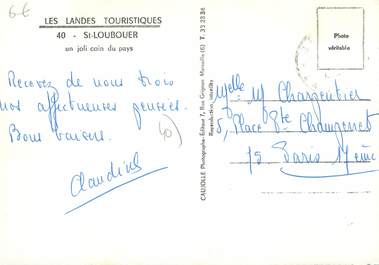 6€
LES LANDES TOURISTIQUES
40 - St-LOUBOUER
un joli coin du pays
Recevez de nous trois
nos affectueuses pensées.
Bons baisers.
40
Claudine
CALJOLLE Photographe-Éditeur 7, Rue Grignan Marseille (6) T. 33 28 34
Reproduction interdite
Photo
véritable
Melle M Charpentier
5, Place Pte Champerret
75 Paris 17ème